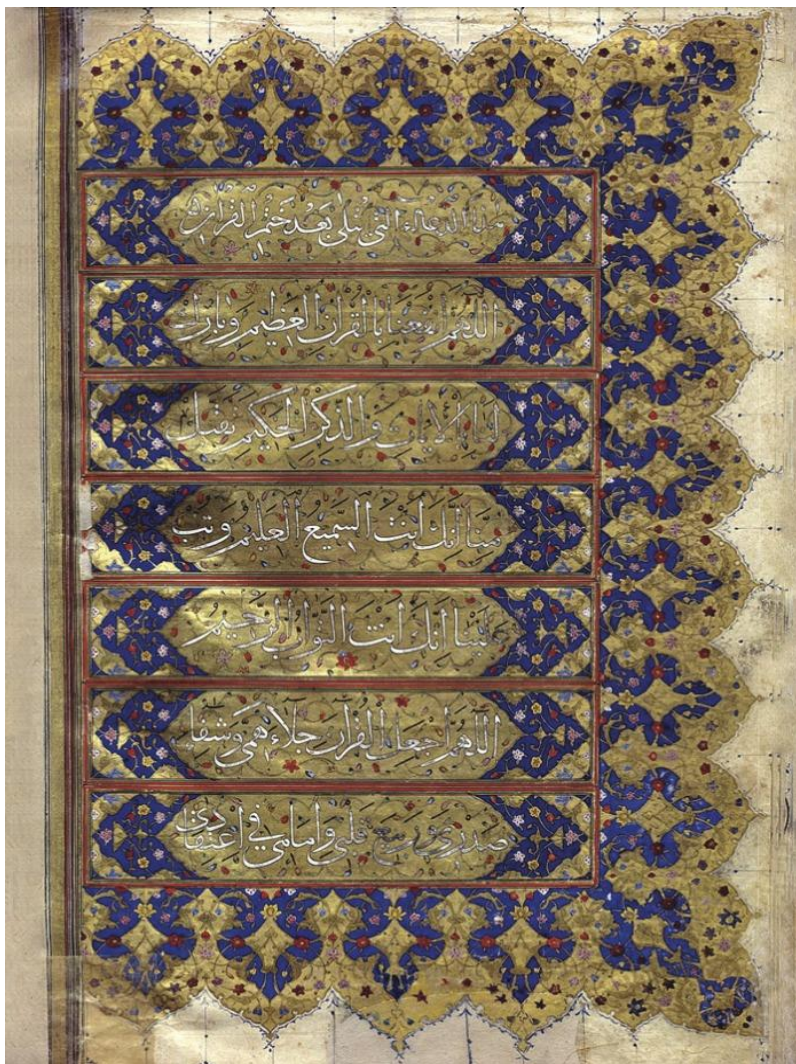 هذا الدعاء التی یتلی بعد ختم القران
اللهم انفعنا بالقران العظیم وبارك
لنا بالایات والذكر الحكیم تقبل
منا انك انت السمیع العلیم وتب
علینا انك انت التواب الرحیم
اللهم اجعل القران جلاء همی وشفا
صدری وربیع قلبی وامامی فی اعتقادی